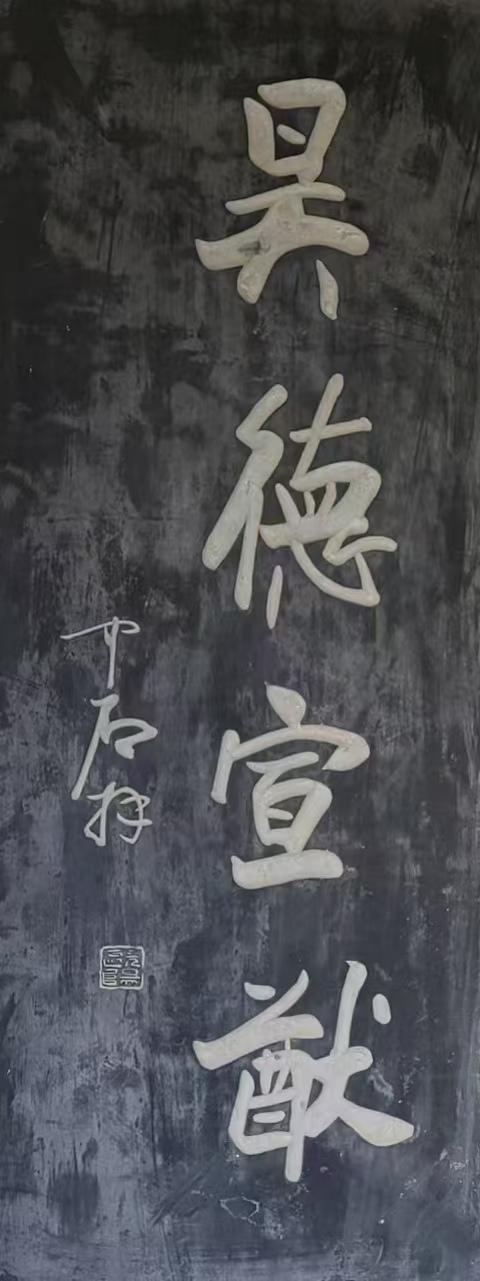 昊德宣猷
中石拜